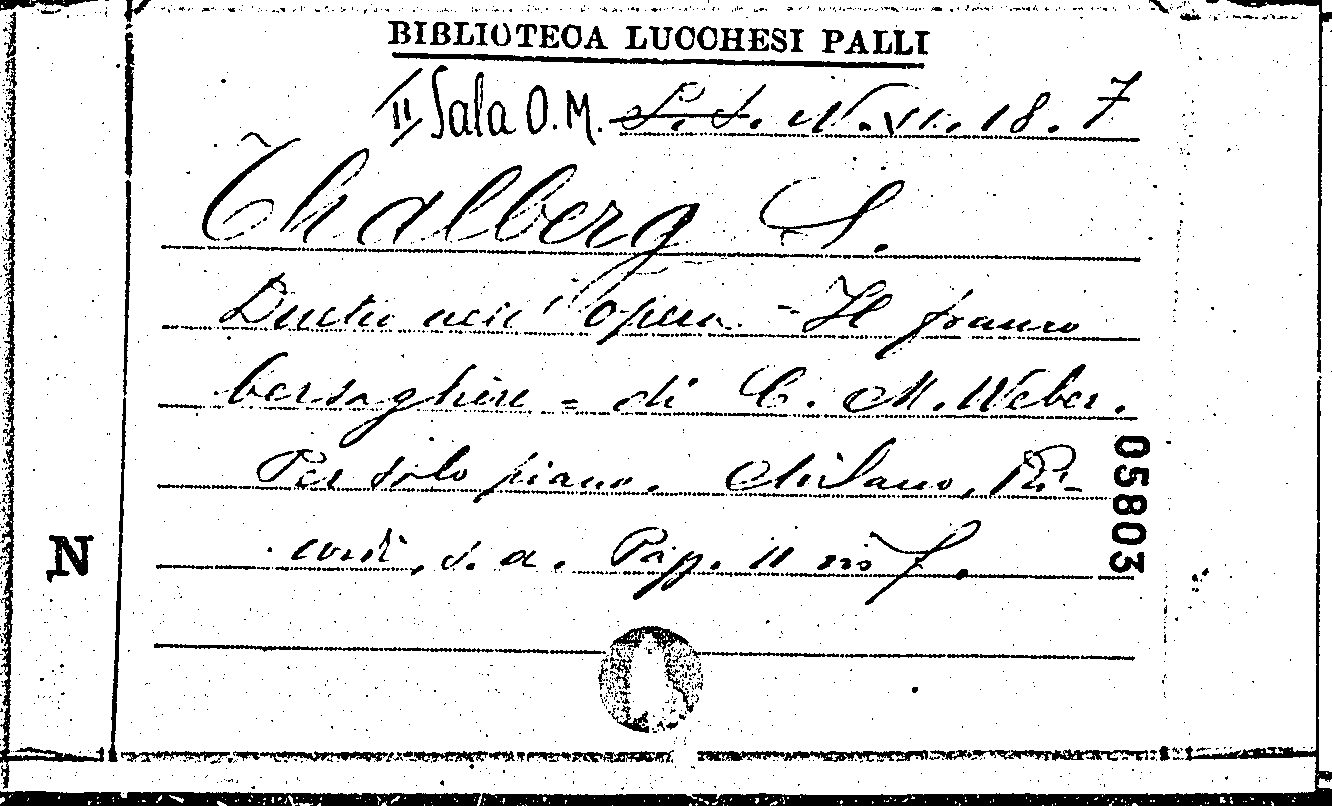 BIBLIOTECA LUCCHESI PALLI
II Sala O.M. S.S. N. VI. 18. 7
Thalberg S.
Duetto nell'opera = Il franco
bersagliere = di C. M. Weber.
Per solo piano. Milano, Ri-
cordi, s. a. Pap. 11 in f.
05803
N